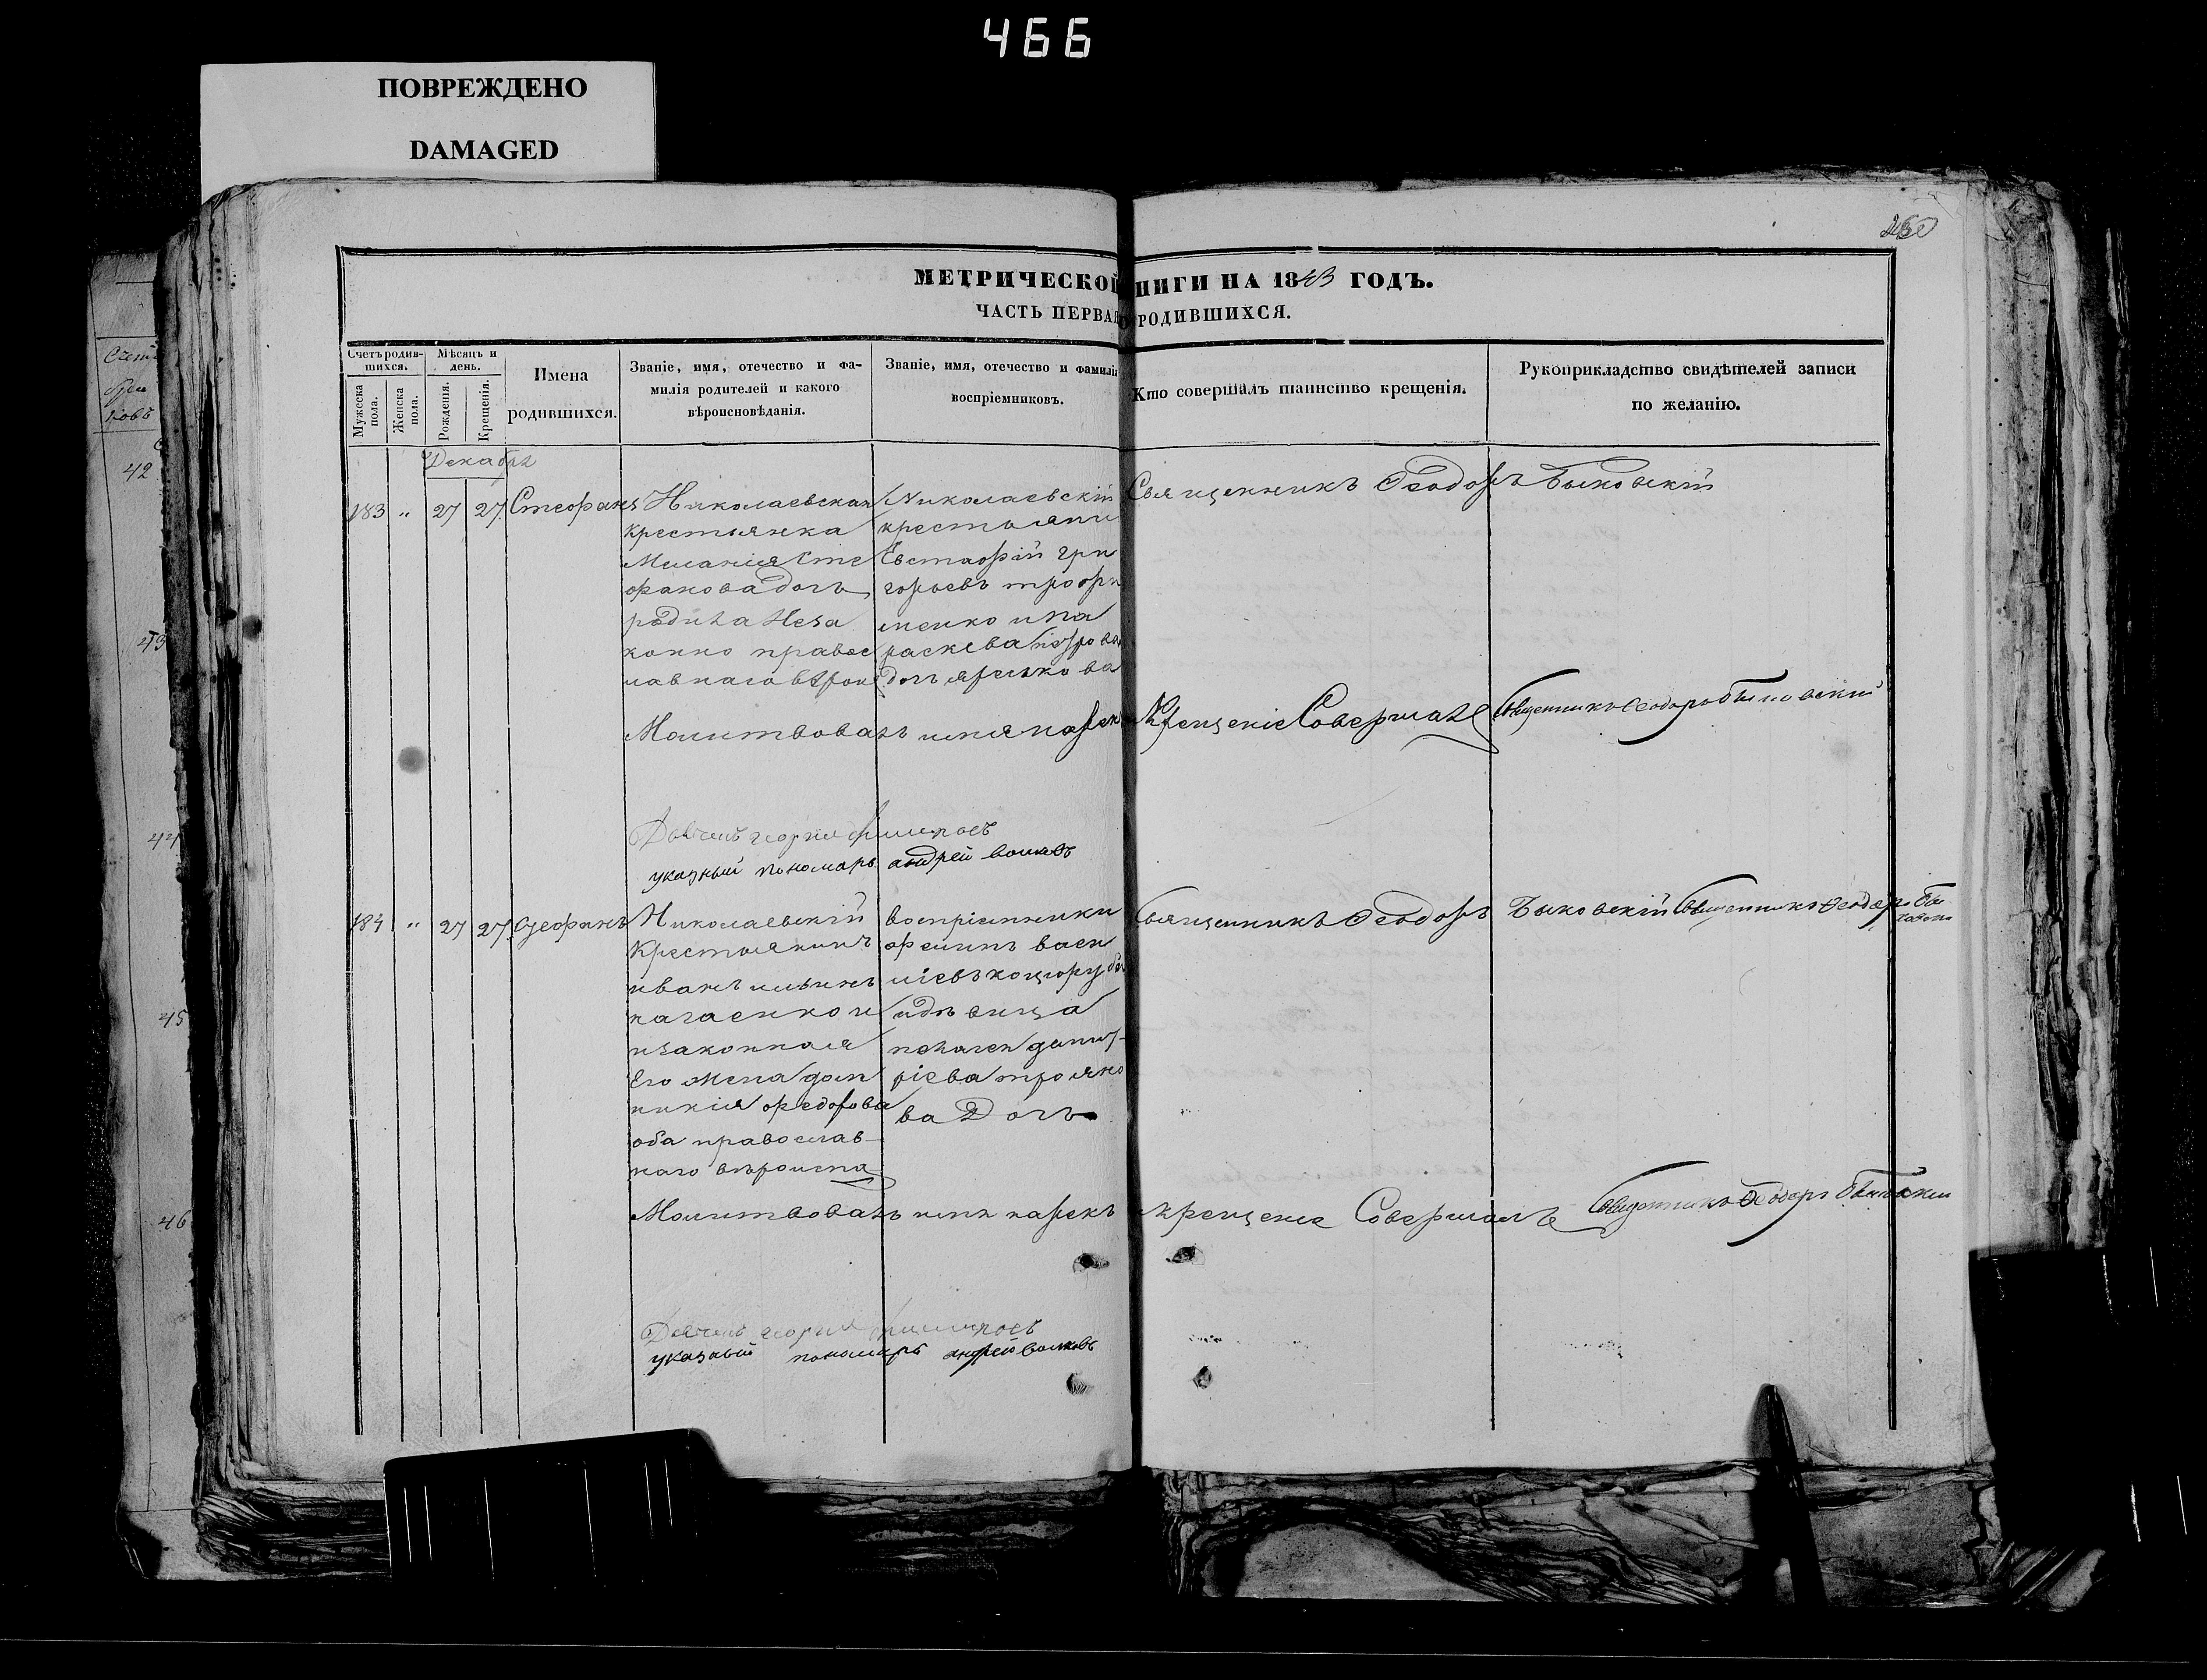 466
ПОВРЕЖДЕНО
DAMAGED
250
МЕТРИЧЕСКОЙ НИГИ НА 1843 ГОДЪ.
ЧАСТЬ ПЕРВАЯ РОДИВШИХСЯ.
Счетъ родив-
шихся.
Мужеска
пола.
Женска
пола.
Мѣсяцъ и
день.
Рожденія.
Крещенія.
Имена
родившихся.
Званіе, имя, отечество и фа-
милія родителей и какого
вѣроисновѣданія.
Званіе, имя, отечество и фамилія
воспріемниковъ.
Кто совершалъ таинство крещенія.
Рукоприкладство свидѣтелей записи
по желанію.
Декабря
183 " 27 27 Стефанъ
Николаевская
крестьянка
Меланія Сте
фанова дочь
родила Неза
конно правос
лавнаго вѣрои
Николаевскій
крестьянинъ
Евстафій гри
горьевъ трофи
менко и па
раскева петрова
дочь
Священникъ Феодоръ Быковскій
Молитвовалъ имя нарекъ Крещеніе Совершалъ Священникъ Феодоръ Быковскій
Дьячекъ георгій
указный пономарь андрей волковъ
184 " 27 27 Стефанъ
Николаевскій
Крестьянинъ
иванъ ильинъ
и
изаконная
Его жена дом
никія федорова
оба православ-
наго вѣроиспа
воспріемники
филипъ васи
ліевъ
и дѣвица
димит-
ріева
ва Дочь
Священникъ Феодоръ Быковскій Священникъ Феодоръ Бы
ковскій
Молитвовалъ имя нарекъ крещеніе Совершалъ Священникъ Феодоръ Быковскій
Дьячекъ георгій
указный пономарь андрей волковъ
42
43
44
45
46